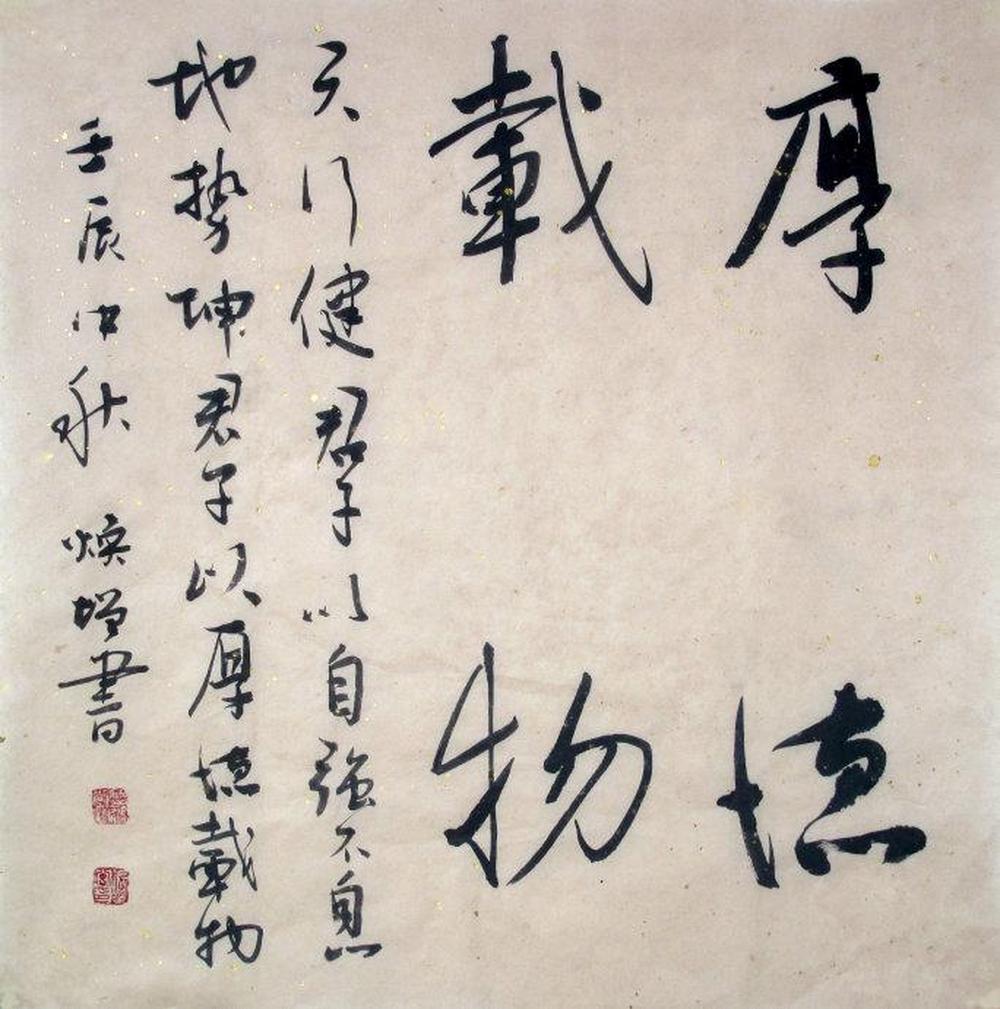 厚德
載物
天行健君子以自强不息
地势坤君子以厚德載物
壬辰中秋 焕增書